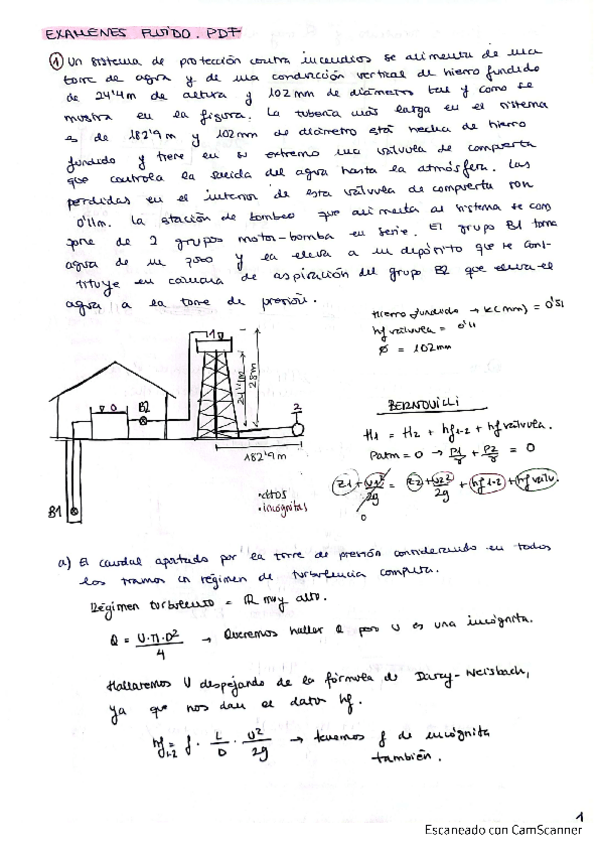 EXAMENES FLUIDO. PDF
① Un sistema de protección contra incendios se alimenta de una
torre de agua y de una conducción vertical de hierro fundido
de 24'4m de altura y 102 mm de diámetro tal y como se
muestra en la figura. La tubería más larga en el sistema
es de 182'9 m y 102mm de diámetro está hecha de hierro
fundido y tiene en su extremo una válvula de compuerta
que controla la salida del agua hasta la atmósfera. Las
perdidas en el interior de esta válvula de compuerta son
0'11m. La stación de bombeo que alimenta al sistema se com
pone de 2 grupos motor-bomba en serie. El grupo B1 toma
agua de un pozo y la eleva a un depósito que se cons-
tituye en cámara de aspiración del grupo B2 que eleva el
agua a la torre de presión.
Hierro fundido → k(mm) = 0'51
hf válvula = 0'11
Ø = 102mm
1
24'4m
28m
0
B2
2
182'9 m
B1
• dtos
• incógnitas
BERNOUILLI
H1 = H2 + hf1-2 + hf válvula.
Patm = 0 → P1/γ + P2/γ = 0
z1 + v1²/2g = z2 + v2²/2g + hf 1-2 + hf válv.
0
a) El caudal aportado por la torre de presión considerando en todos
los tramos un régimen de turbulencia completa.
Régimen turbulento = R muy alto.
Q = V·Π·D²/4 → Queremos hallar Q pero V es una incógnita.
Hallaremos V despejando de la fórmula de Darcy-Weisbach,
ya que nos dan el dato hf.
hf1-2 = f · L/D · v²/2g → tenemos f de incógnita
también.
1
Escaneado con CamScanner